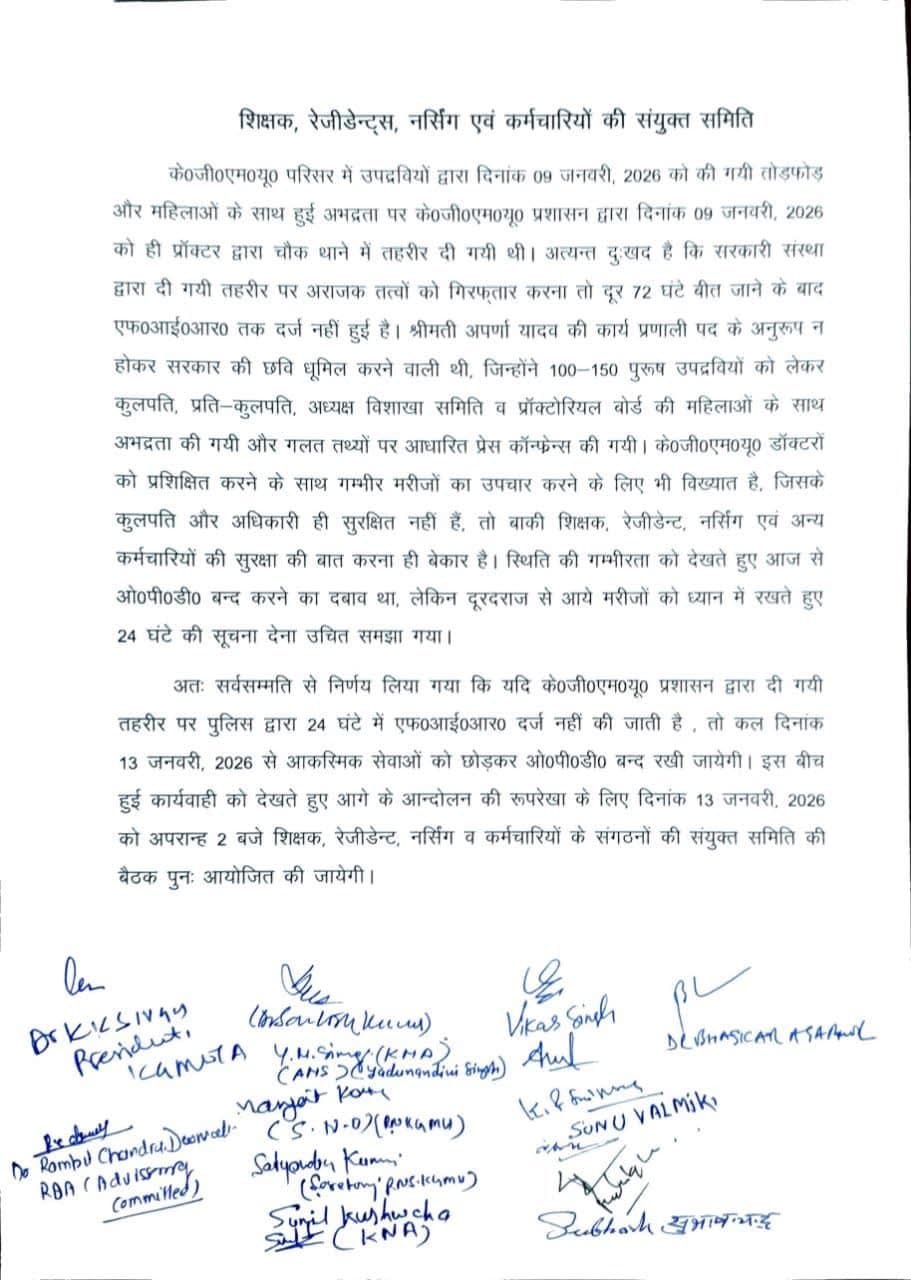 शिक्षक, रेजीडेन्ट्स, नर्सिंग एवं कर्मचारियों की संयुक्त समिति
के0जी0एम0यू0 परिसर में उपद्रवियों द्वारा दिनांक 09 जनवरी, 2026 को की गयी तोडफोड़
और महिलाओं के साथ हुई अभद्रता पर के0जी0एम0यू0 प्रशासन द्वारा दिनांक 09 जनवरी, 2026
को ही प्रॉक्टर द्वारा चौक थाने में तहरीर दी गयी थी। अत्यन्त दुःखद है कि सरकारी संस्था
द्वारा दी गयी तहरीर पर अराजक तत्वों को गिरफ्तार करना तो दूर 72 घंटे बीत जाने के बाद
एफ0आई0आर0 तक दर्ज नहीं हुई है। श्रीमती अपर्णा यादव की कार्य प्रणाली पद के अनुरूप न
होकर सरकार की छवि धूमिल करने वाली थी, जिन्होंने 100–150 पुरूष उपद्रवियों को लेकर
कुलपति, प्रति–कुलपति, अध्यक्ष विशाखा समिति व प्रॉक्टोरियल बोर्ड की महिलाओं के साथ
अभद्रता की गयी और गलत तथ्यों पर आधारित प्रेस कॉन्फ्रेन्स की गयी। के0जी0एम0यू0 डॉक्टरों
को प्रशिक्षित करने के साथ गम्भीर मरीजों का उपचार करने के लिए भी विख्यात है, जिसके
कुलपति और अधिकारी ही सुरक्षित नहीं हैं, तो बाकी शिक्षक, रेजीडेन्ट, नर्सिंग एवं अन्य
कर्मचारियों की सुरक्षा की बात करना ही बेकार है। स्थिति की गम्भीरता को देखते हुए आज से
ओ0पी0डी0 बन्द करने का दबाव था, लेकिन दूरदराज से आये मरीजों को ध्यान में रखते हुए
24 घंटे की सूचना देना उचित समझा गया।
अतः सर्वसम्मति से निर्णय लिया गया कि यदि के0जी0एम0यू0 प्रशासन द्वारा दी गयी
तहरीर पर पुलिस द्वारा 24 घंटे में एफ0आई0आर0 दर्ज नहीं की जाती है , तो कल दिनांक
13 जनवरी, 2026 से आकस्मिक सेवाओं को छोड़कर ओ0पी0डी0 बन्द रखी जायेगी। इस बीच
हुई कार्यवाही को देखते हुए आगे के आन्दोलन की रूपरेखा के लिए दिनांक 13 जनवरी, 2026
को अपरान्ह 2 बजे शिक्षक, रेजीडेन्ट, नर्सिंग व कर्मचारियों के संगठनों की संयुक्त समिति की
बैठक पुनः आयोजित की जायेगी।
Dr K.K. SINGH
President,
KGMUTA
(Dr Santosh Kumar)
Vikas Singh
Dr BHASKAR AGARWAL
Y.N. Singh (KNA)
(ANS) (Yadunandini Singh)
Manjeet Kaur
(S.N.O) (RNS KGMU)
SONU VALMIKI
RDA (Advisory
Committed)
Satyendra Kumar
(Secretary RNS.KGMU)
Sunil Kushwaha
(KNA)
Subhash सुभाष चन्द्र